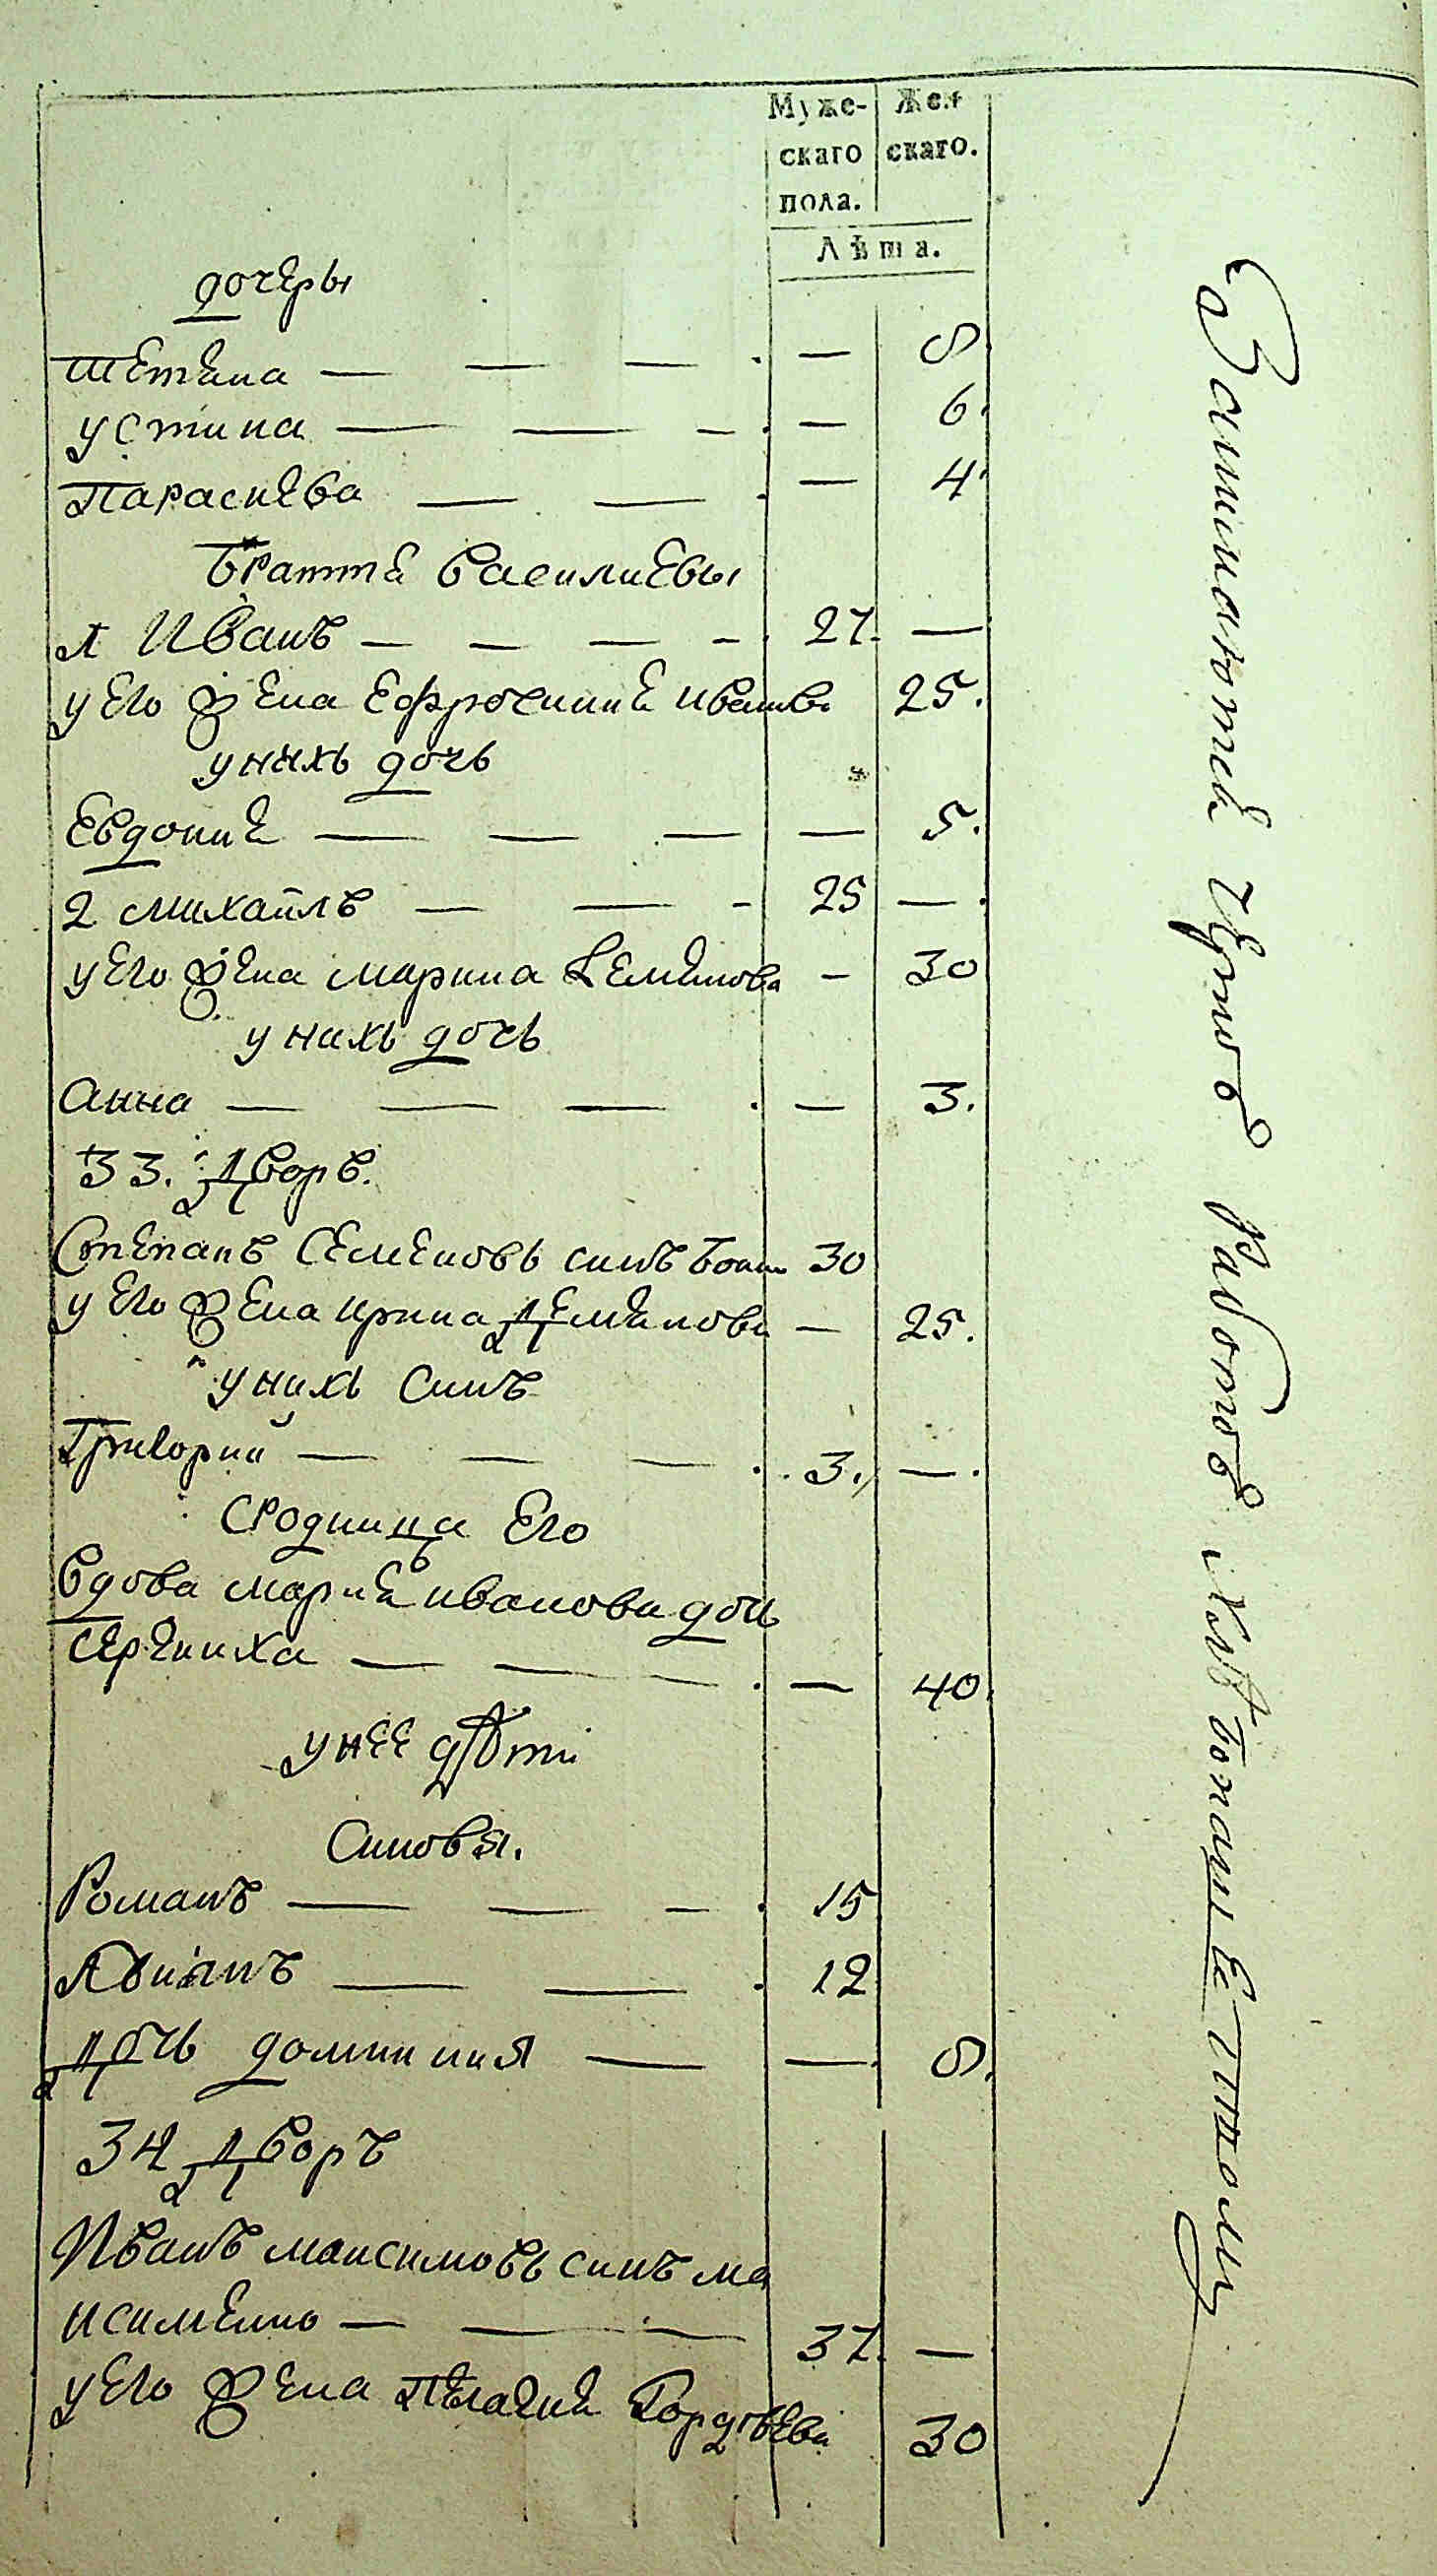 Муже- Жен
скаго скаго.
пола.
Лѣта.
дочеры
Тетяна — — — . — 8.
устина — — — . — 6.
Параскева — — . — 4.
Братия Василиевы
1 Иванъ — — — — 27. —
у его жена Ефросиния Иванова 25.
унихъ дочь
Евдокия — — — — 5.
2 михаилъ — — — 25 — .
у его жена марина Семенова — 30
у нихъ дочь
Анна — — — . — 3.
33. Дворъ.
Степанъ Семеновъ синъ 30
у его жена ирина Демянова — 25.
унихъ Синъ
Григорий — — — . 3. — .
Сродница Его
Вдова мария иванова дочь
— — — . — 40.
унее дѣти
Синовя.
Романъ — — — . 15
— — . 12
Дочь домникия — — 8.
34 Дворъ
Иванъ максимовъ синъ ма
ксименко — — — 37. —
у его жена Пелагия Гордѣева 30
Занимаются работою хлебопашественною